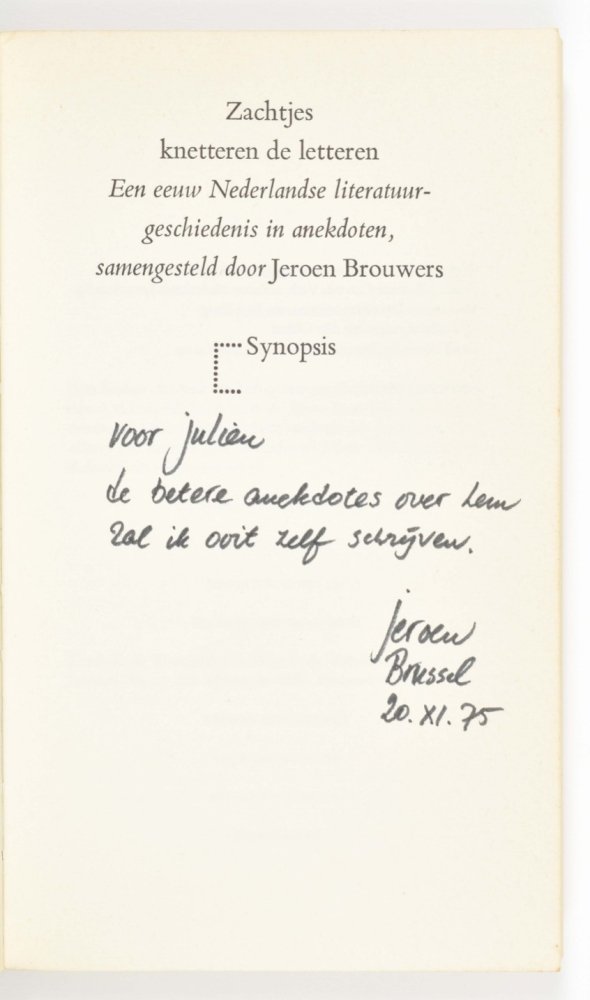 Zachtjes
knetteren de letteren
Een eeuw Nederlandse literatuur-
geschiedenis in anekdoten,
samengesteld door Jeroen Brouwers
Synopsis
voor julien
de betere anekdotes over hem
zal ik ooit zelf schrijven.
jeroen
Brussel
20.XI.75